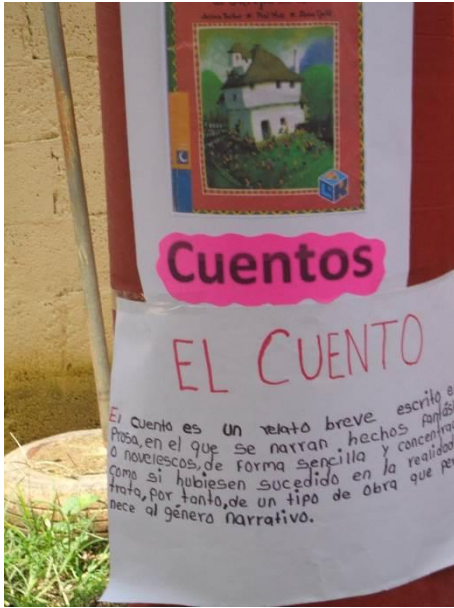 Cuentos
EL CUENTO
El cuento es un relato breve escrito e
Prosa, en el que se narran hechos fantás
o novelescos, de forma sencilla y concentrad
como si hubiesen sucedido en la realidad
trata, por tanto, de un tipo de obra que per
nece al género narrativo.